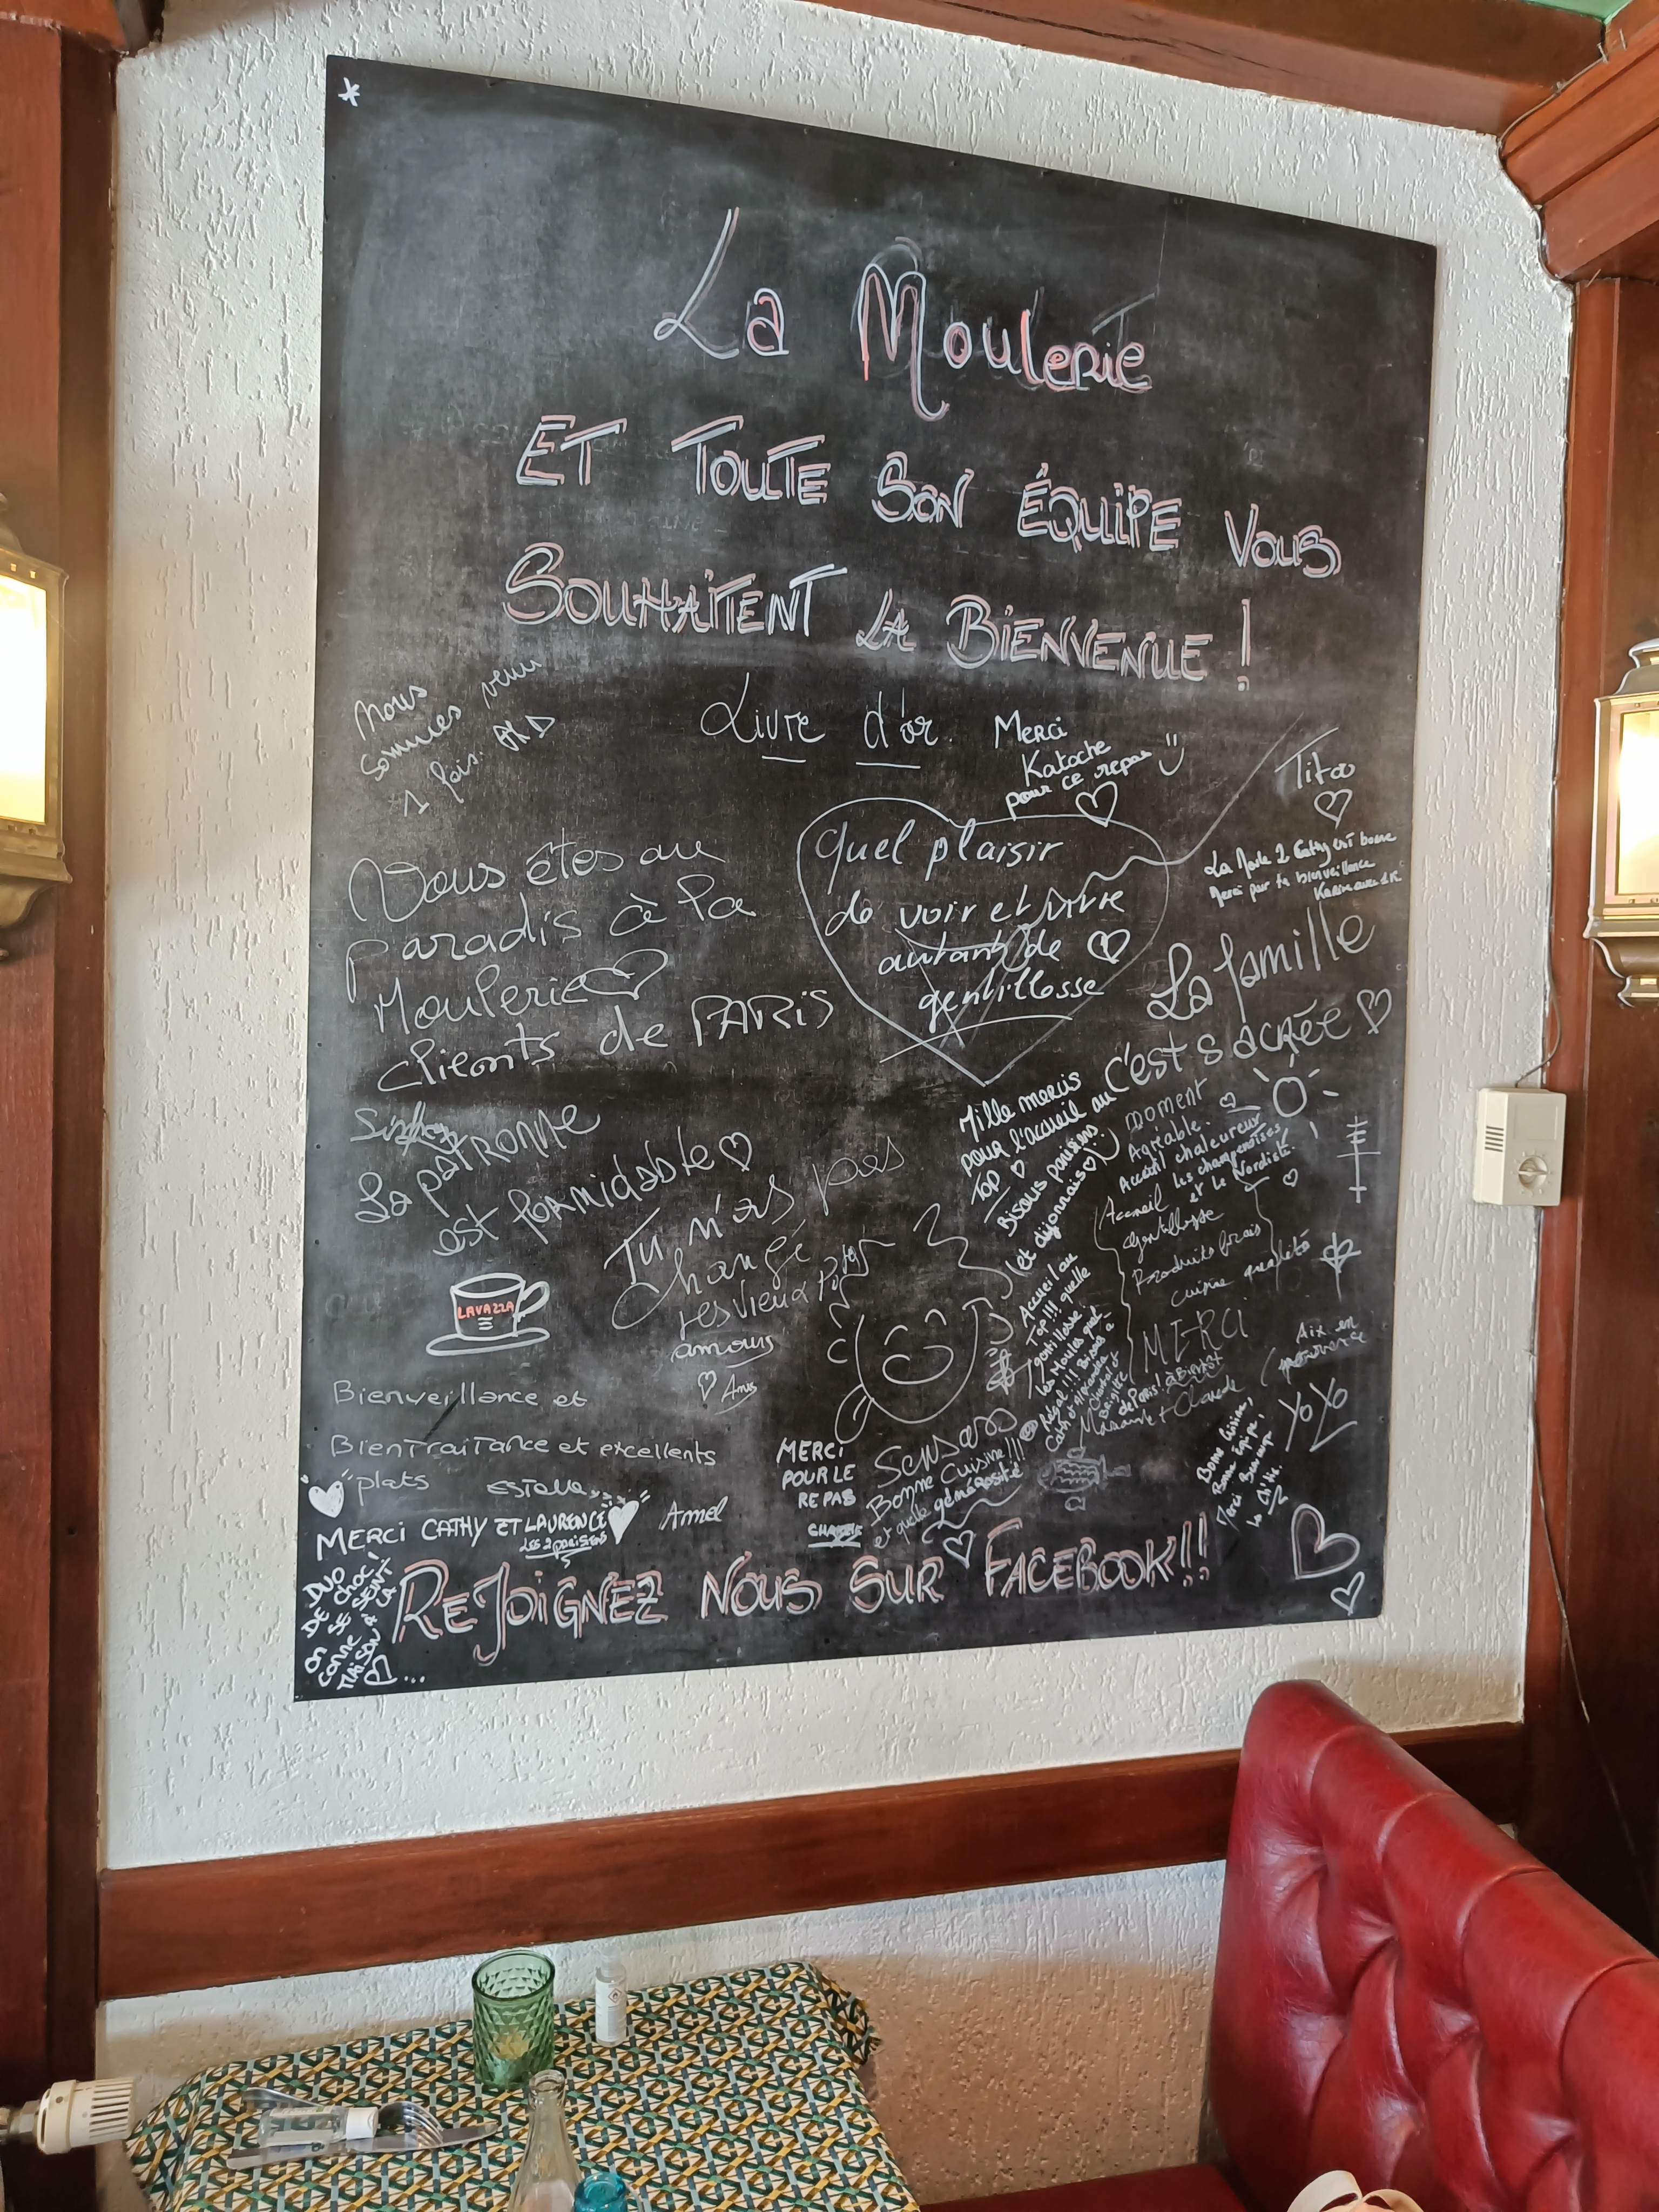 La Moulerie
ET TOUTE SON ÉQUIPE VOUS
SOUHAITENT LA BIENVENUE !
Livre d'or
Nous
sommes venu
1 fois.
Merci
Katoche
pour ce repas
Titoo
Vous êtes au
paradis à la
Moulerie
clients de PARIS
quel plaisir
de voir et vivre
autant de
gentillesse
Merci pour ta bienveillance
La famille
c'est sacrée
La patronne
est formidable
Tu n'as pas
changé
tes vieux
amours
Mille mercis
pour l'accueil au
TOP
Bisous parisiens
et dijonnais
moment
Agréable.
Accueil chaleureux
les champenoises
et le Nordiste.
Accueil
gentillesse
Produits frais
cuisine qualité
MERCI
de Paris! à Bientôt
Accueil au
Top!!! quelle
gentillesse.
les Moules quel
régal!!! Bisous à
Cathy et
LAVAZZA
Bienveillance et
BienTraiTance et excellents
plats
Estella
Amel
MERCI CATHY ET LAURENCE
LES 2 parisiens
MERCI
POUR LE
REPAS
Bonne Cuisine!!!
et quelle générosité
Aix en
provence
YOYO
Bonne cuisine,
Bonne équipe,
Merci Beaucoup
DUO
DE choc!
ON SE SENT
comme à LA
MAISON
...
REJOIGNEZ NOUS SUR FACEBOOK!!